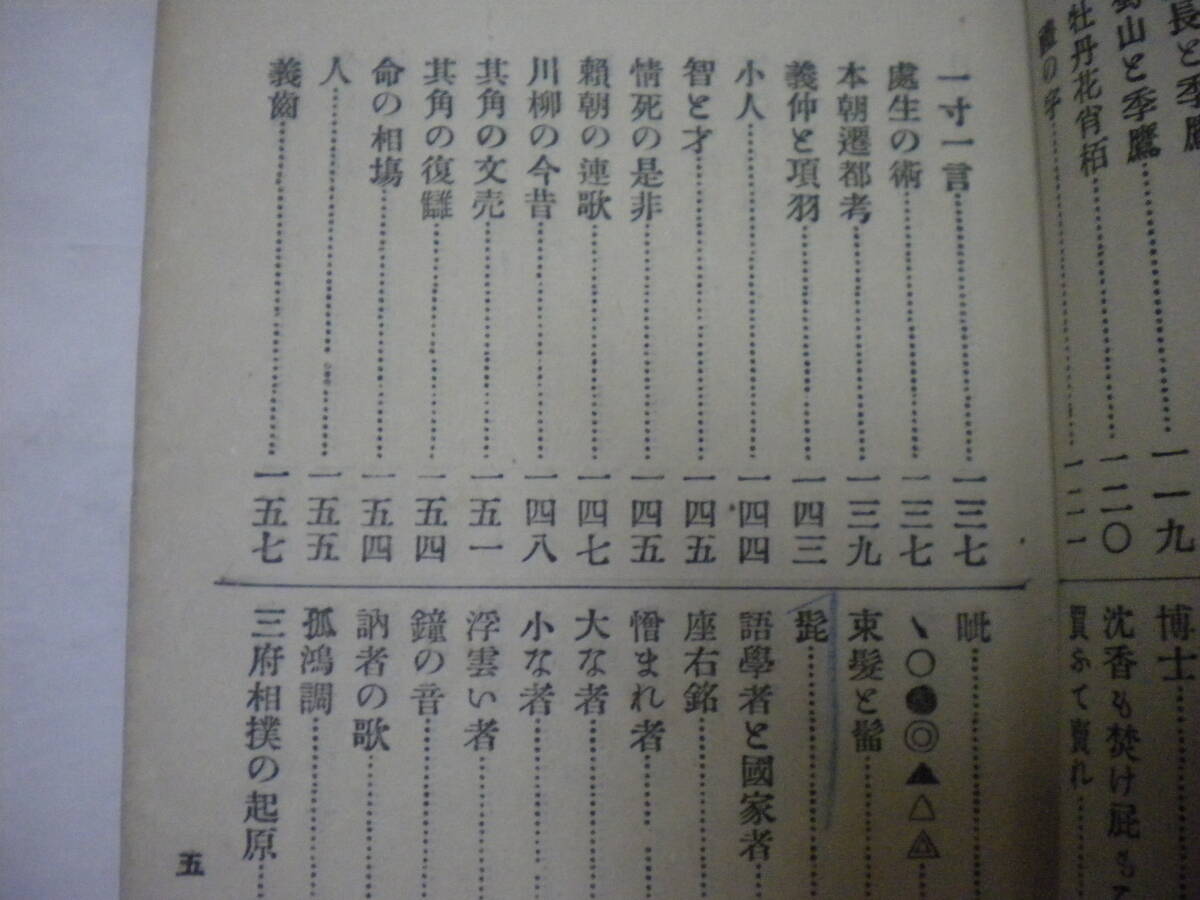 長と季鷹
山と季鷹……一一九
牡丹花宵栢……一二〇
の字……一二一
博士……
沈香も焚け屁も
買ふて賣れ……
一寸一言……一三七
處生の術……一三七
本朝遷都考……一三九
義仲と項羽……一四三
小人……一四四
智と才……一四五
情死の是非……一四五
賴朝の連歌……一四七
川柳の今昔……一四八
其角の文売……一五一
其角の復讎……一五四
命の相場……一五四
人……一五五
義齒……一五七
﹅○●◎▲△◬……
束髮と髷……
髭……
語學者と國家者……
座右銘……
憎まれ者……
大な者……
小な者……
浮雲い者……
鐘の音……
訥者の歌……
孤鴻調……
三府相撲の起原……
五